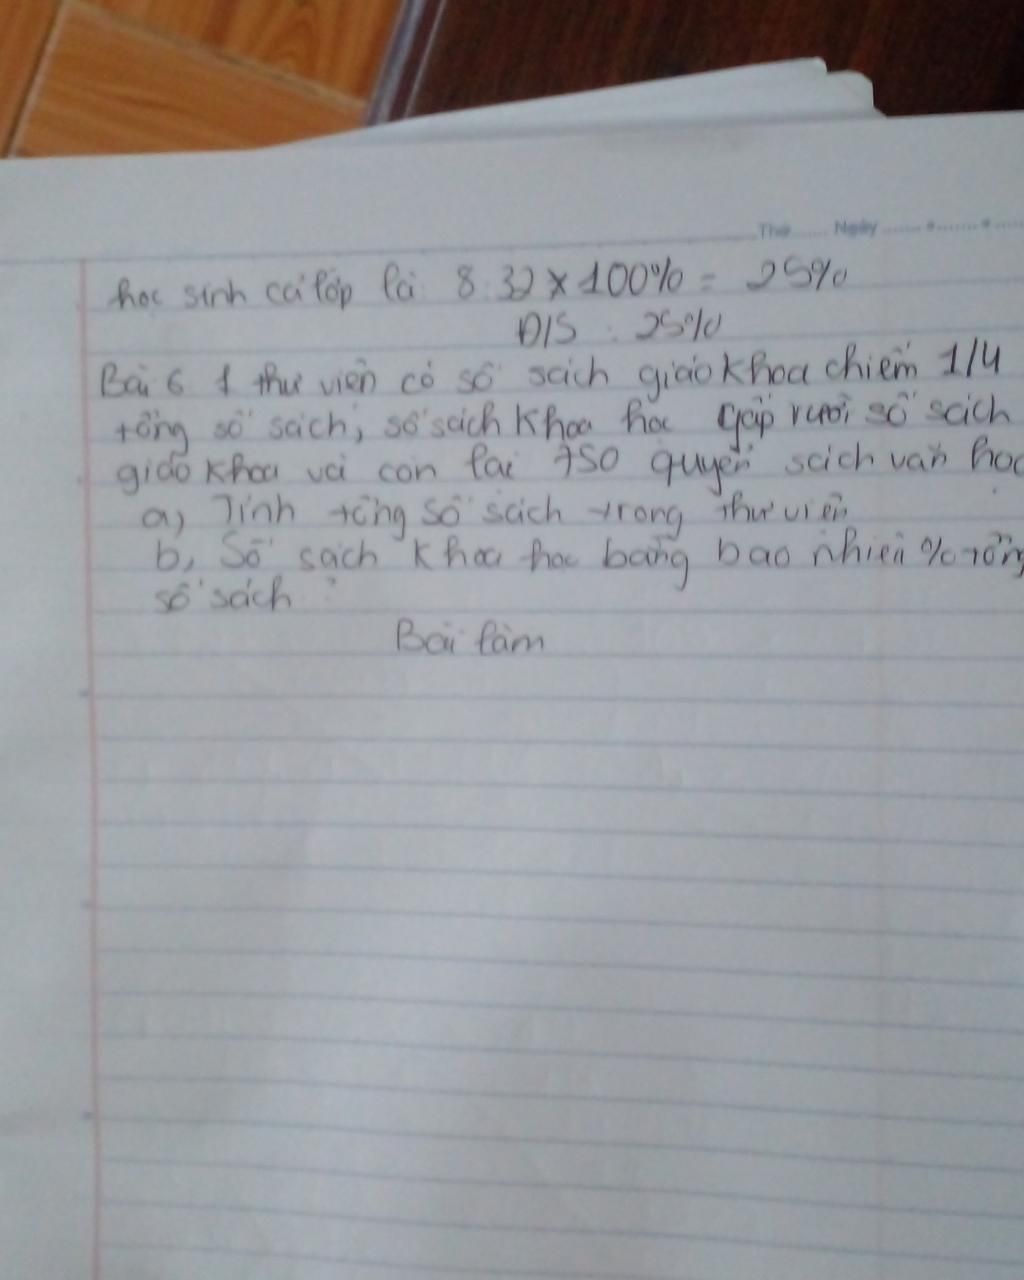 Thứ ...... Ngày ...... • ...... • ......
học sinh cả lớp là: 8:32 x 100% = 25%
Đ/S : 25%
Bài 6. 1 thư viện có số sách giáo khoa chiếm 1/4
tổng số sách, số sách khoa học gấp rưỡi số sách
giáo khoa và còn lại 750 quyển sách văn học
a, Tính tổng số sách trong thư viện
b, Số sách khoa học bằng bao nhiên % tổng
số sách ?
Bài làm